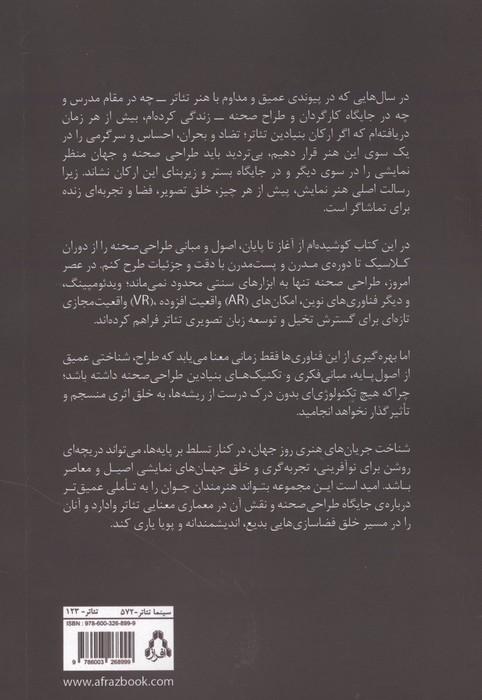 در سال‌هایی که در پیوندی عمیق و مداوم با هنر تئاتر ــ چه در مقام مدرس و
چه در جایگاه کارگردان و طراح صحنه ــ زندگی کرده‌ام، بیش از هر زمان
دریافته‌ام که اگر ارکان بنیادین تئاتر؛ تضاد و بحران، احساس و سرگرمی را در
یک سوی این هنر قرار دهیم، بی‌تردید باید طراحی صحنه و جهان منظر
نمایشی را در سوی دیگر و در جایگاه بستر و زیربنای این ارکان نشاند. زیرا
رسالت اصلی هنر نمایش، پیش از هر چیز، خلق تصویر، فضا و تجربه‌ای زنده
برای تماشاگر است.
در این کتاب کوشیده‌ام از آغاز تا پایان، اصول و مبانی طراحی‌صحنه را از دوران
کلاسیک تا دوره‌ی مدرن و پست‌مدرن با دقت و جزئیات طرح کنم. در عصر
امروز، طراحی صحنه تنها به ابزارهای سنتی محدود نمی‌ماند؛ ویدئومپینگ،
و دیگر فناوری‌های نوین، امکان‌های (AR) واقعیت افزوده ،(VR) واقعیت‌مجازی
تازه‌ای برای گسترش تخیل و توسعه زبان تصویری تئاتر فراهم کرده‌اند.
اما بهره‌گیری از این فناوری‌ها فقط زمانی معنا می‌یابد که طراح، شناختی عمیق
از اصول‌پایه، مبانی‌فکری و تکنیک‌های بنیادین طراحی‌صحنه داشته باشد؛
چراکه هیچ تکنولوژی‌ای بدون درک درست از ریشه‌ها، به خلق اثری منسجم و
تأثیرگذار نخواهد انجامید.
شناخت جریان‌های هنری روز جهان، در کنار تسلط بر پایه‌ها، می‌تواند دریچه‌ای
روشن برای نوآفرینی، تجربه‌گری و خلق جهان‌های نمایشی اصیل و معاصر
باشد. امید است این مجموعه بتواند هنرمندان جوان را به تأملی عمیق‌تر
درباره‌ی جایگاه طراحی‌صحنه و نقش آن در معماری معنایی تئاتر وادارد و آنان
را در مسیر خلق فضاسازی‌هایی بدیع، اندیشمندانه و پویا یاری کند.
سینما تئاتر-۵۷۲ تئاتر- ۱۲۳
ISBN : 978-600-326-899-9
9 786003 268999
افراز
www.afrazbook.com